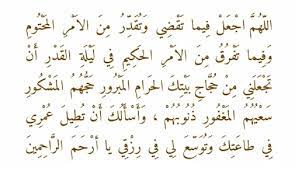 اَللّهُمَّ اجْعَلْ فِيما تَقْضِي وَتُقَدِّرُ مِنَ الاَمْرِ الَمحْتُومِ
وَفِيما تَفْرُقُ مِنَ الاَمْرِ الحَكِيمِ فِي لَيْلَةِ القَدْرِ أَنْ
تَجْعَلَنِي مِنْ حُجَّاجِ بَيْتِكَ الحَرامِ المَبْرُورِ حَجُّهُمُ المَشْكُورِ
سَعْيُهُمُ المَغْفُورِ ذُنُوبُهُمْ ، وَأَسْأَلُكَ أَنْ تُطِيلَ عُمْرِي
فِي طاعَتِكَ وَتُوَسِّعَ لِي فِي رِزْقِي يا أَرْحَمَ الرَّاحِمِينَ